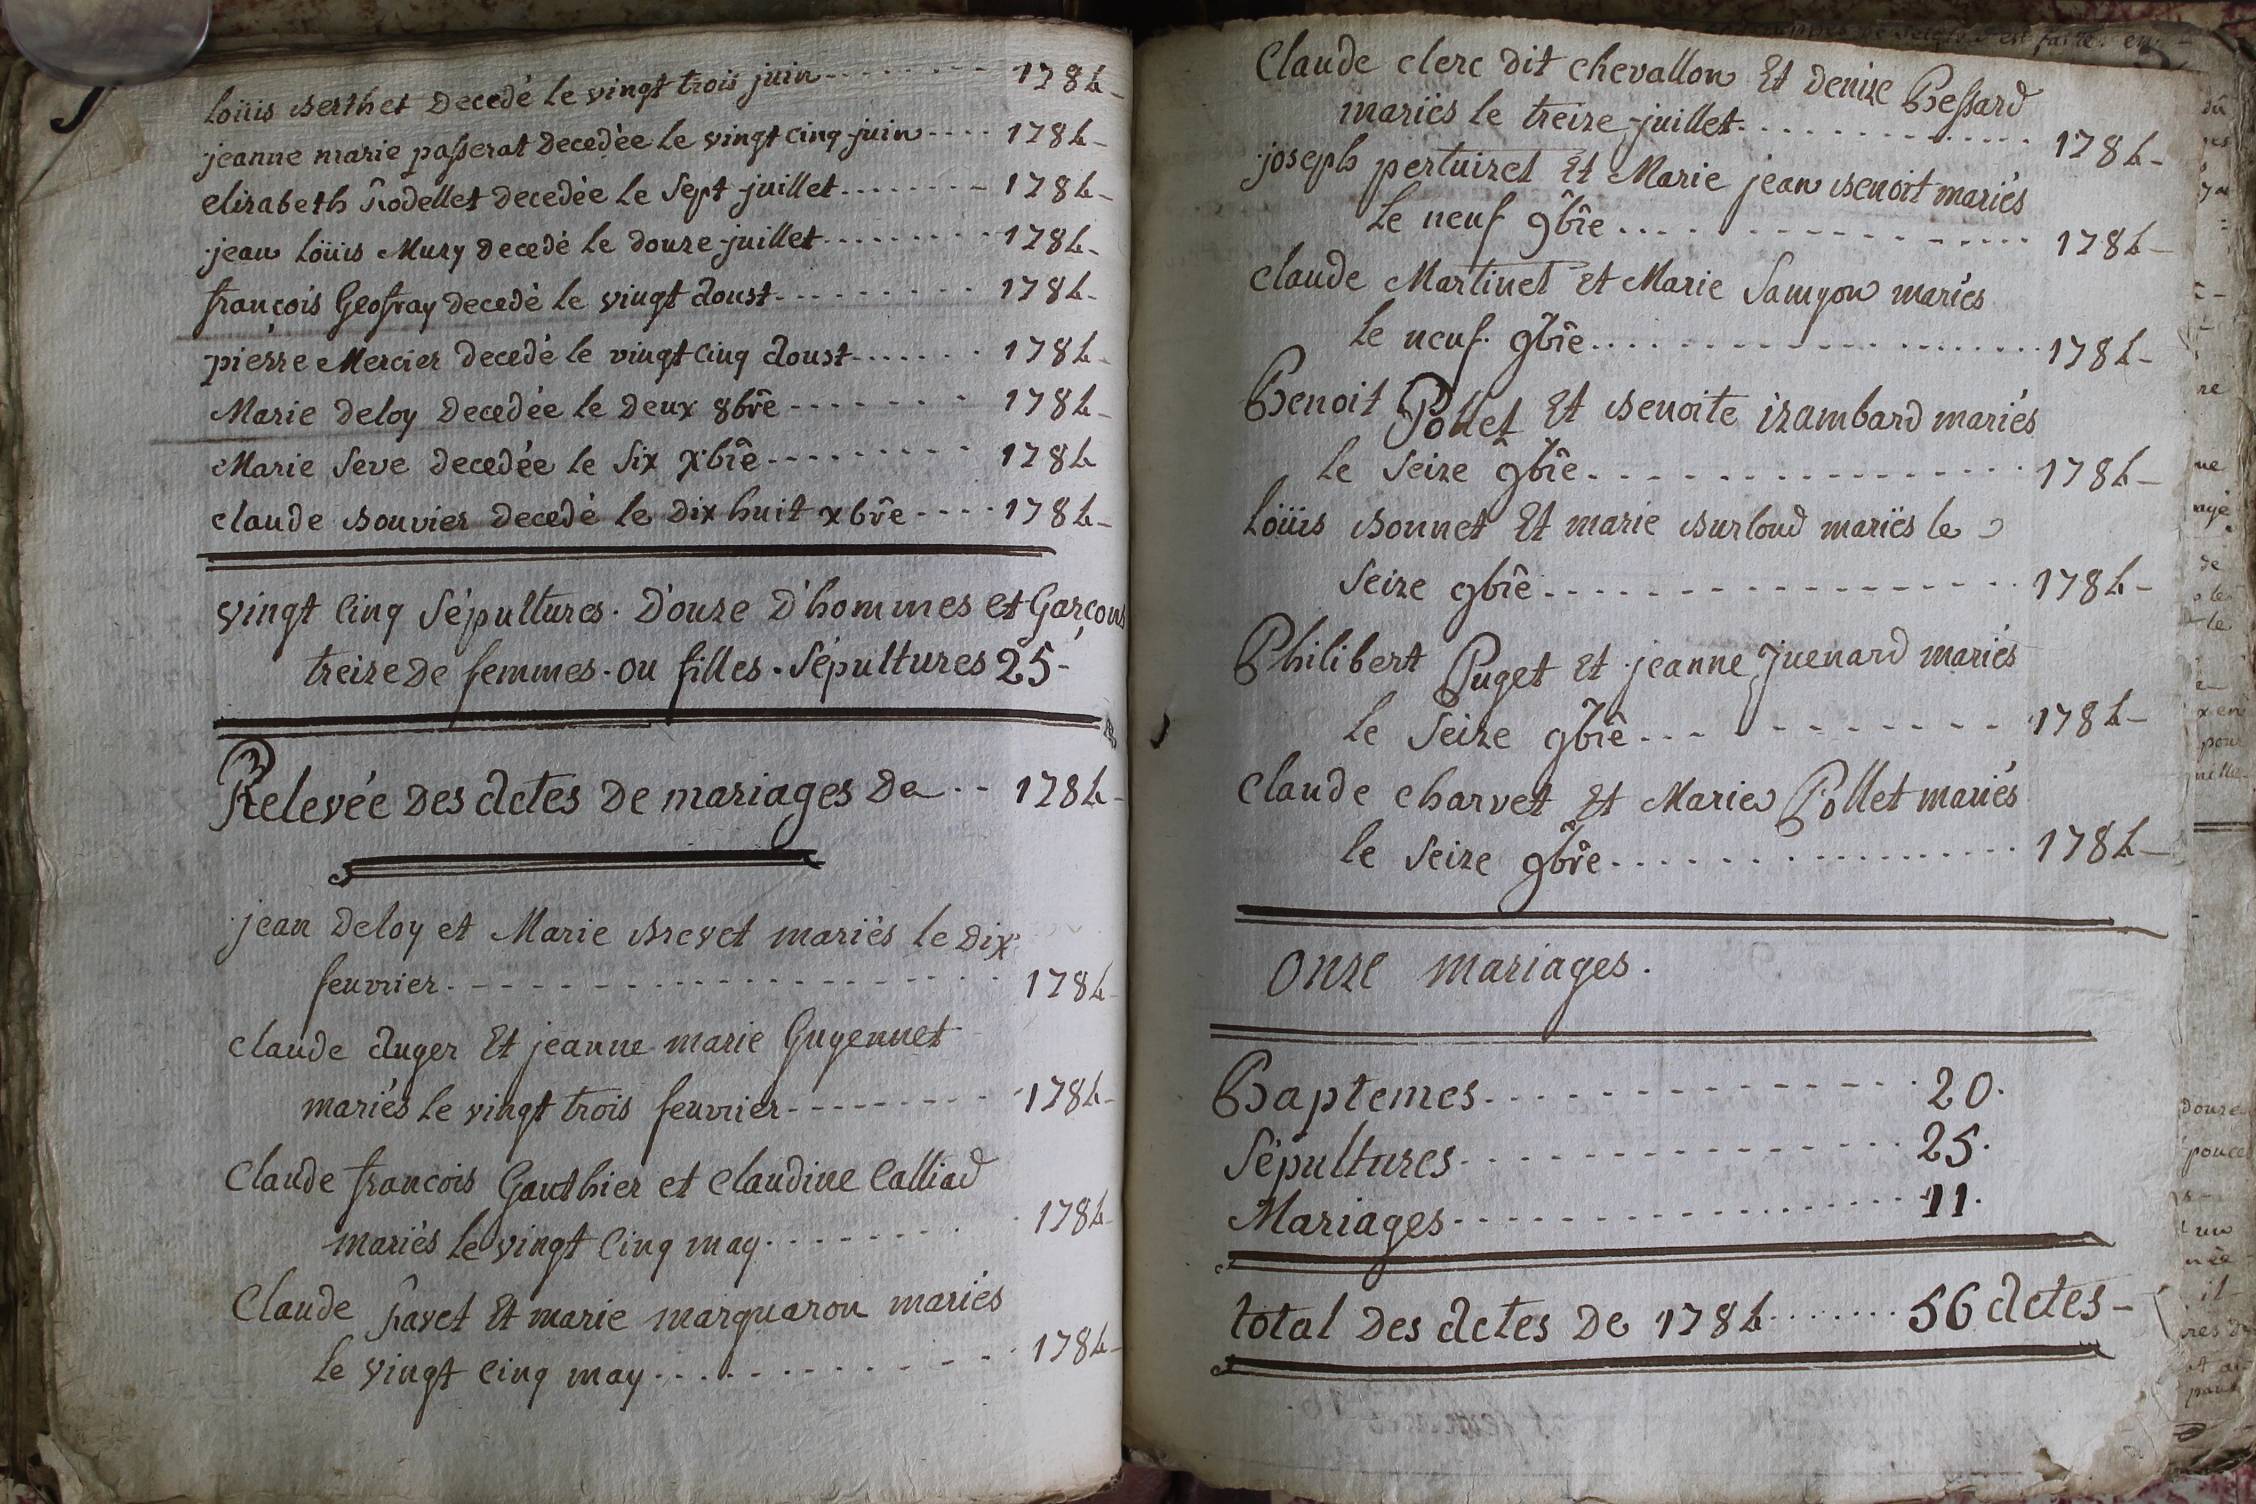 loüis Berthet Decedé le vingt trois juin 1784
jeanne marie passerat Decedée le vingt cinq juin 1784
elizabeth Rodellet decedée le sept juillet 1784
jean loüis Mury decedé le douze juillet 1784
françois Geofray decedé le vingt Aoust 1784
pierre Mercier decedé le vingt cinq Aoust 1784
Marie deloy Decedée le Deux 8bre 1784
Marie Seve decedée le Six Xbre 1784
claude Bouvier decedé le Dix huit xbre 1784
vingt cinq Sépultures. Douze D'hommes et Garçons
treize de femmes. ou filles. Sépultures 25
Relevée Des Actes De mariages De 1784
jean Deloy et Marie Brevet mariés le Dix
feuvrier 1784
claude Auger Et jeanne marie Guyennet
mariés le vingt trois feuvrier 1784
Claude françois Gauthier et Claudine Calliad
mariés le vingt cinq may 1784
Claude favet Et marie marquaron mariés
le vingt cinq may 1784
Claude clerc dit chevallon Et denize Bessard
mariés le treize juillet 1784
joseph pertuizet Et Marie jean Benoit mariés
le neuf 9bre 1784
Claude Martinet Et Marie Samyon mariés
le neuf 9bre 1784
Benoit Pollet Et Benoite izambard mariés
le Seize 9bre 1784
loüis Bonnet Et marie Burloud mariés le
Seize 9bre 1784
Philibert Puget Et jeanne Juenard mariés
le Seize 9bre 1784
Claude Charvet Et Marie Pollet mariés
le Seize 9bre 1784
Onze mariages.
Baptemes 20.
Sépultures 25.
Mariages 11.
total Des Actes De 1784 56 Actes